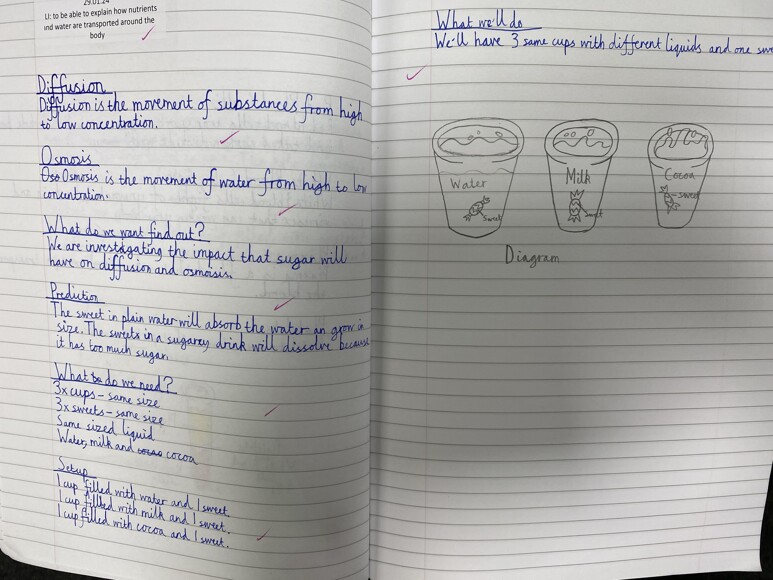 29.01.24
LI: to be able to explain how nutrients
and water are transported around the
body
Diffusion
Diffusion is the movement of substances from high
to low concentration.
Osmosis
Oso Osmosis is the movement of water from high to low
concentration.
What do we want find out?
We are investagating the impact that sugar will
have on diffusion and osmoisis.
Prediction
The sweet in plain water will absorb the water an grow in
size. The sweets in a sugarey drink will dissolve because
it has too much sugar.
What do we need?
3x cups - same size
3x sweets - same size
Same sized liquid
Water, milk and cocoa
Setup
1 cup filled with water and 1 sweet.
1 cup filled with milk and 1 sweet.
1 cup filled with cocoa and 1 sweet.
What we'll do
We'll have 3 same cups with different liquids and one swe
Water
Sweet
Milk
Sweet
Cocoa
Sweet
Diagram